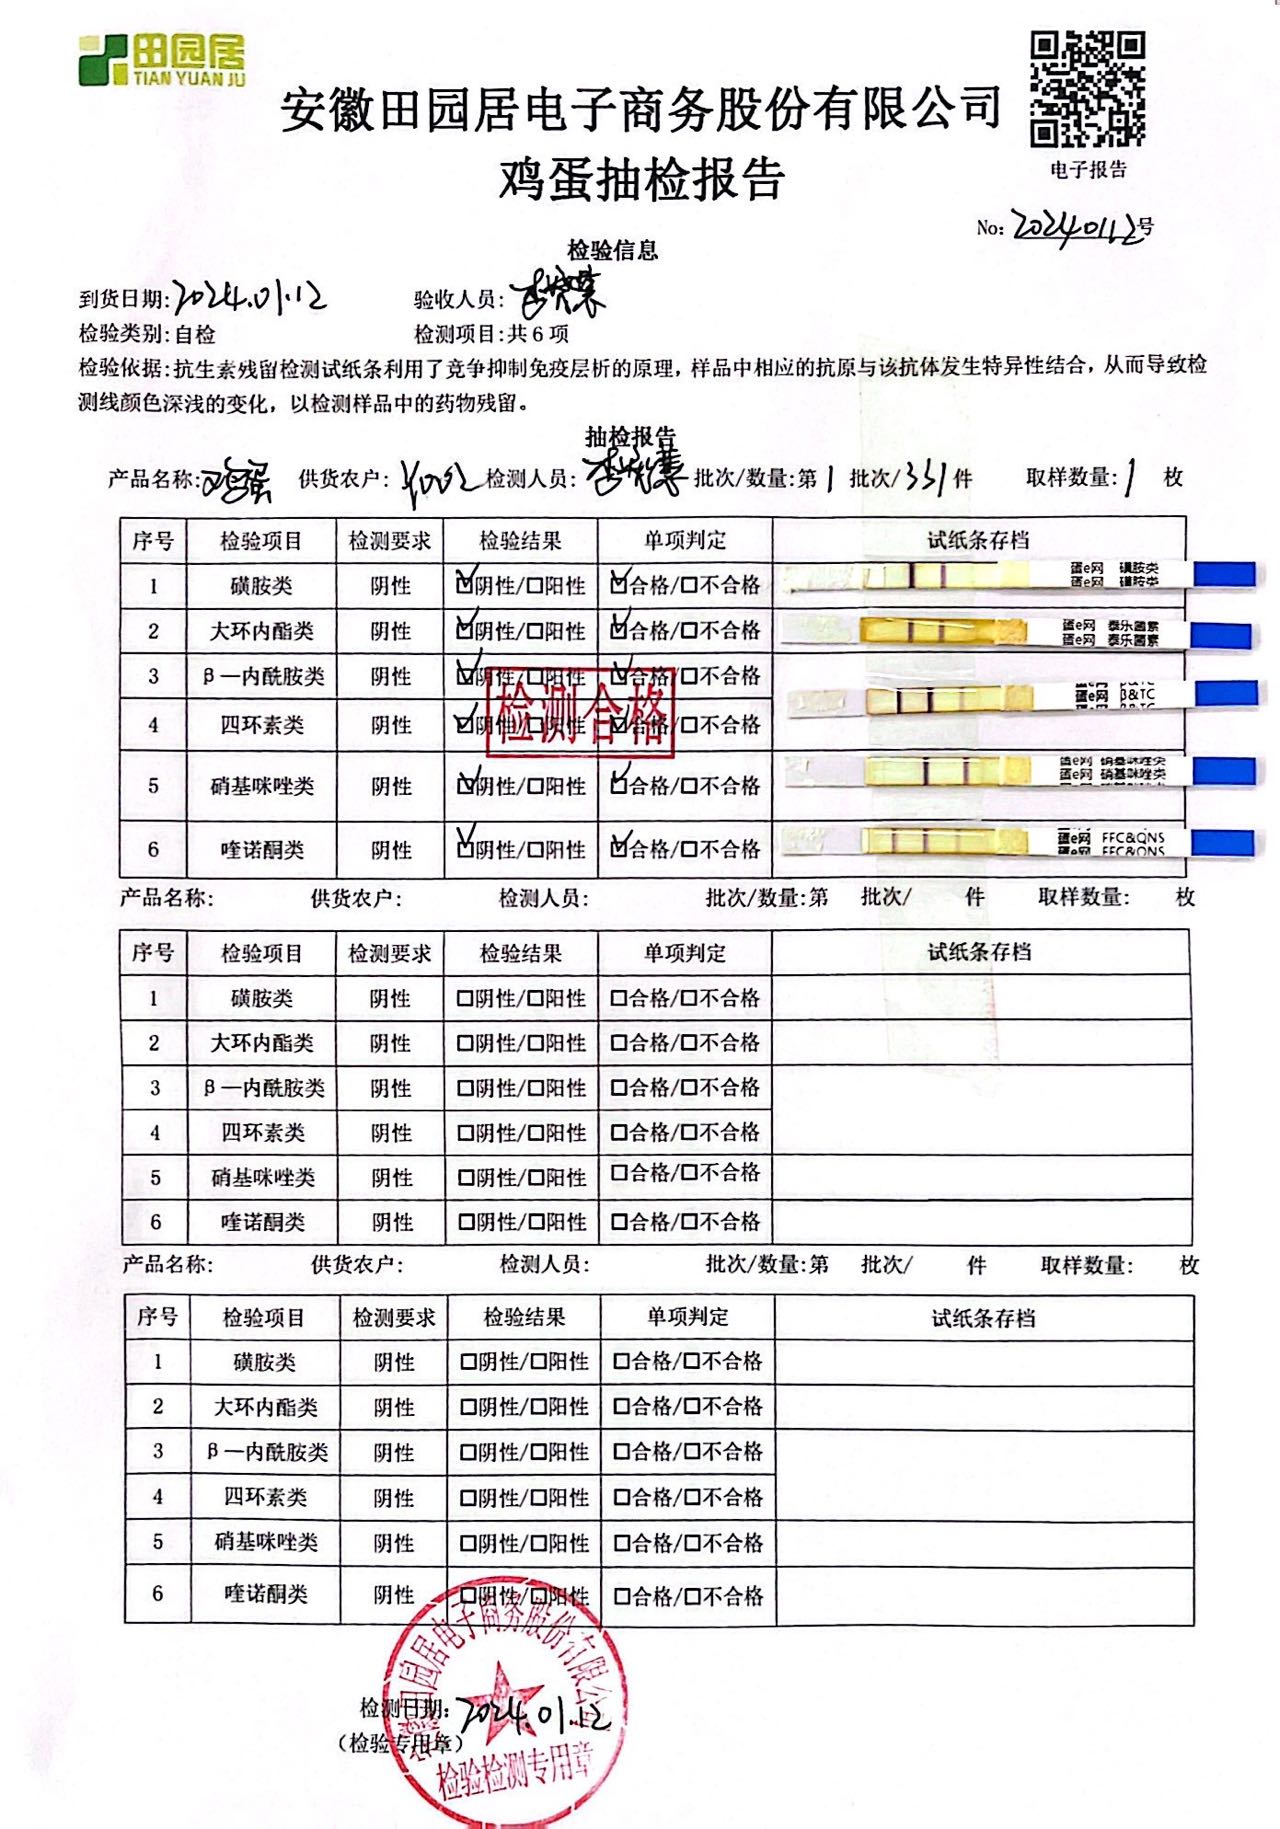 田园居
TIAN YUAN JU
安徽田园居电子商务股份有限公司
鸡蛋抽检报告
电子报告
No: 20240112号
检验信息
到货日期:2024.01.12 验收人员:
检验类别:自检 检测项目:共6项
检验依据:抗生素残留检测试纸条利用了竞争抑制免疫层析的原理,样品中相应的抗原与该抗体发生特异性结合,从而导致检
测线颜色深浅的变化,以检测样品中的药物残留。
抽检报告
产品名称:鸡蛋 供货农户: 检测人员: 批次/数量:第1批次/331件 取样数量:1枚
序号 检验项目 检测要求 检验结果 单项判定 试纸条存档
1 磺胺类 阴性 ☑阴性/□阳性 ☑合格/□不合格 蛋e网 磺胺类
蛋e网 磺胺类
2 大环内酯类 阴性 ☑阴性/□阳性 ☑合格/□不合格 蛋e网 泰乐菌素
蛋e网 泰乐菌素
3 β—内酰胺类 阴性 ☑阴性/□阳性 ☑合格/□不合格 蛋e网 β&TC
检测合格
4 四环素类 阴性 ☑阴性/□阳性 ☑合格/□不合格
5 硝基咪唑类 阴性 ☑阴性/□阳性 ☑合格/□不合格 蛋e网 硝基咪唑类
蛋e网 硝基咪唑类
6 喹诺酮类 阴性 ☑阴性/□阳性 ☑合格/□不合格 蛋e网 FFC&QNS
蛋e网 FFC&QNS
产品名称: 供货农户: 检测人员: 批次/数量:第 批次/ 件 取样数量: 枚
序号 检验项目 检测要求 检验结果 单项判定 试纸条存档
1 磺胺类 阴性 □阴性/□阳性 □合格/□不合格
2 大环内酯类 阴性 □阴性/□阳性 □合格/□不合格
3 β—内酰胺类 阴性 □阴性/□阳性 □合格/□不合格
4 四环素类 阴性 □阴性/□阳性 □合格/□不合格
5 硝基咪唑类 阴性 □阴性/□阳性 □合格/□不合格
6 喹诺酮类 阴性 □阴性/□阳性 □合格/□不合格
产品名称: 供货农户: 检测人员: 批次/数量:第 批次/ 件 取样数量: 枚
序号 检验项目 检测要求 检验结果 单项判定 试纸条存档
1 磺胺类 阴性 □阴性/□阳性 □合格/□不合格
2 大环内酯类 阴性 □阴性/□阳性 □合格/□不合格
3 β—内酰胺类 阴性 □阴性/□阳性 □合格/□不合格
4 四环素类 阴性 □阴性/□阳性 □合格/□不合格
5 硝基咪唑类 阴性 □阴性/□阳性 □合格/□不合格
6 喹诺酮类 阴性 □阴性/□阳性 □合格/□不合格
安徽田园居电子商务股份有限公司
检测日期:2024.01.12
(检验专用章)
检验检测专用章